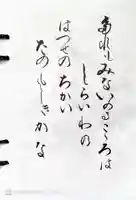 たれもみないのるこころは
しらいわの
はつせのちかい
たのもしきかな